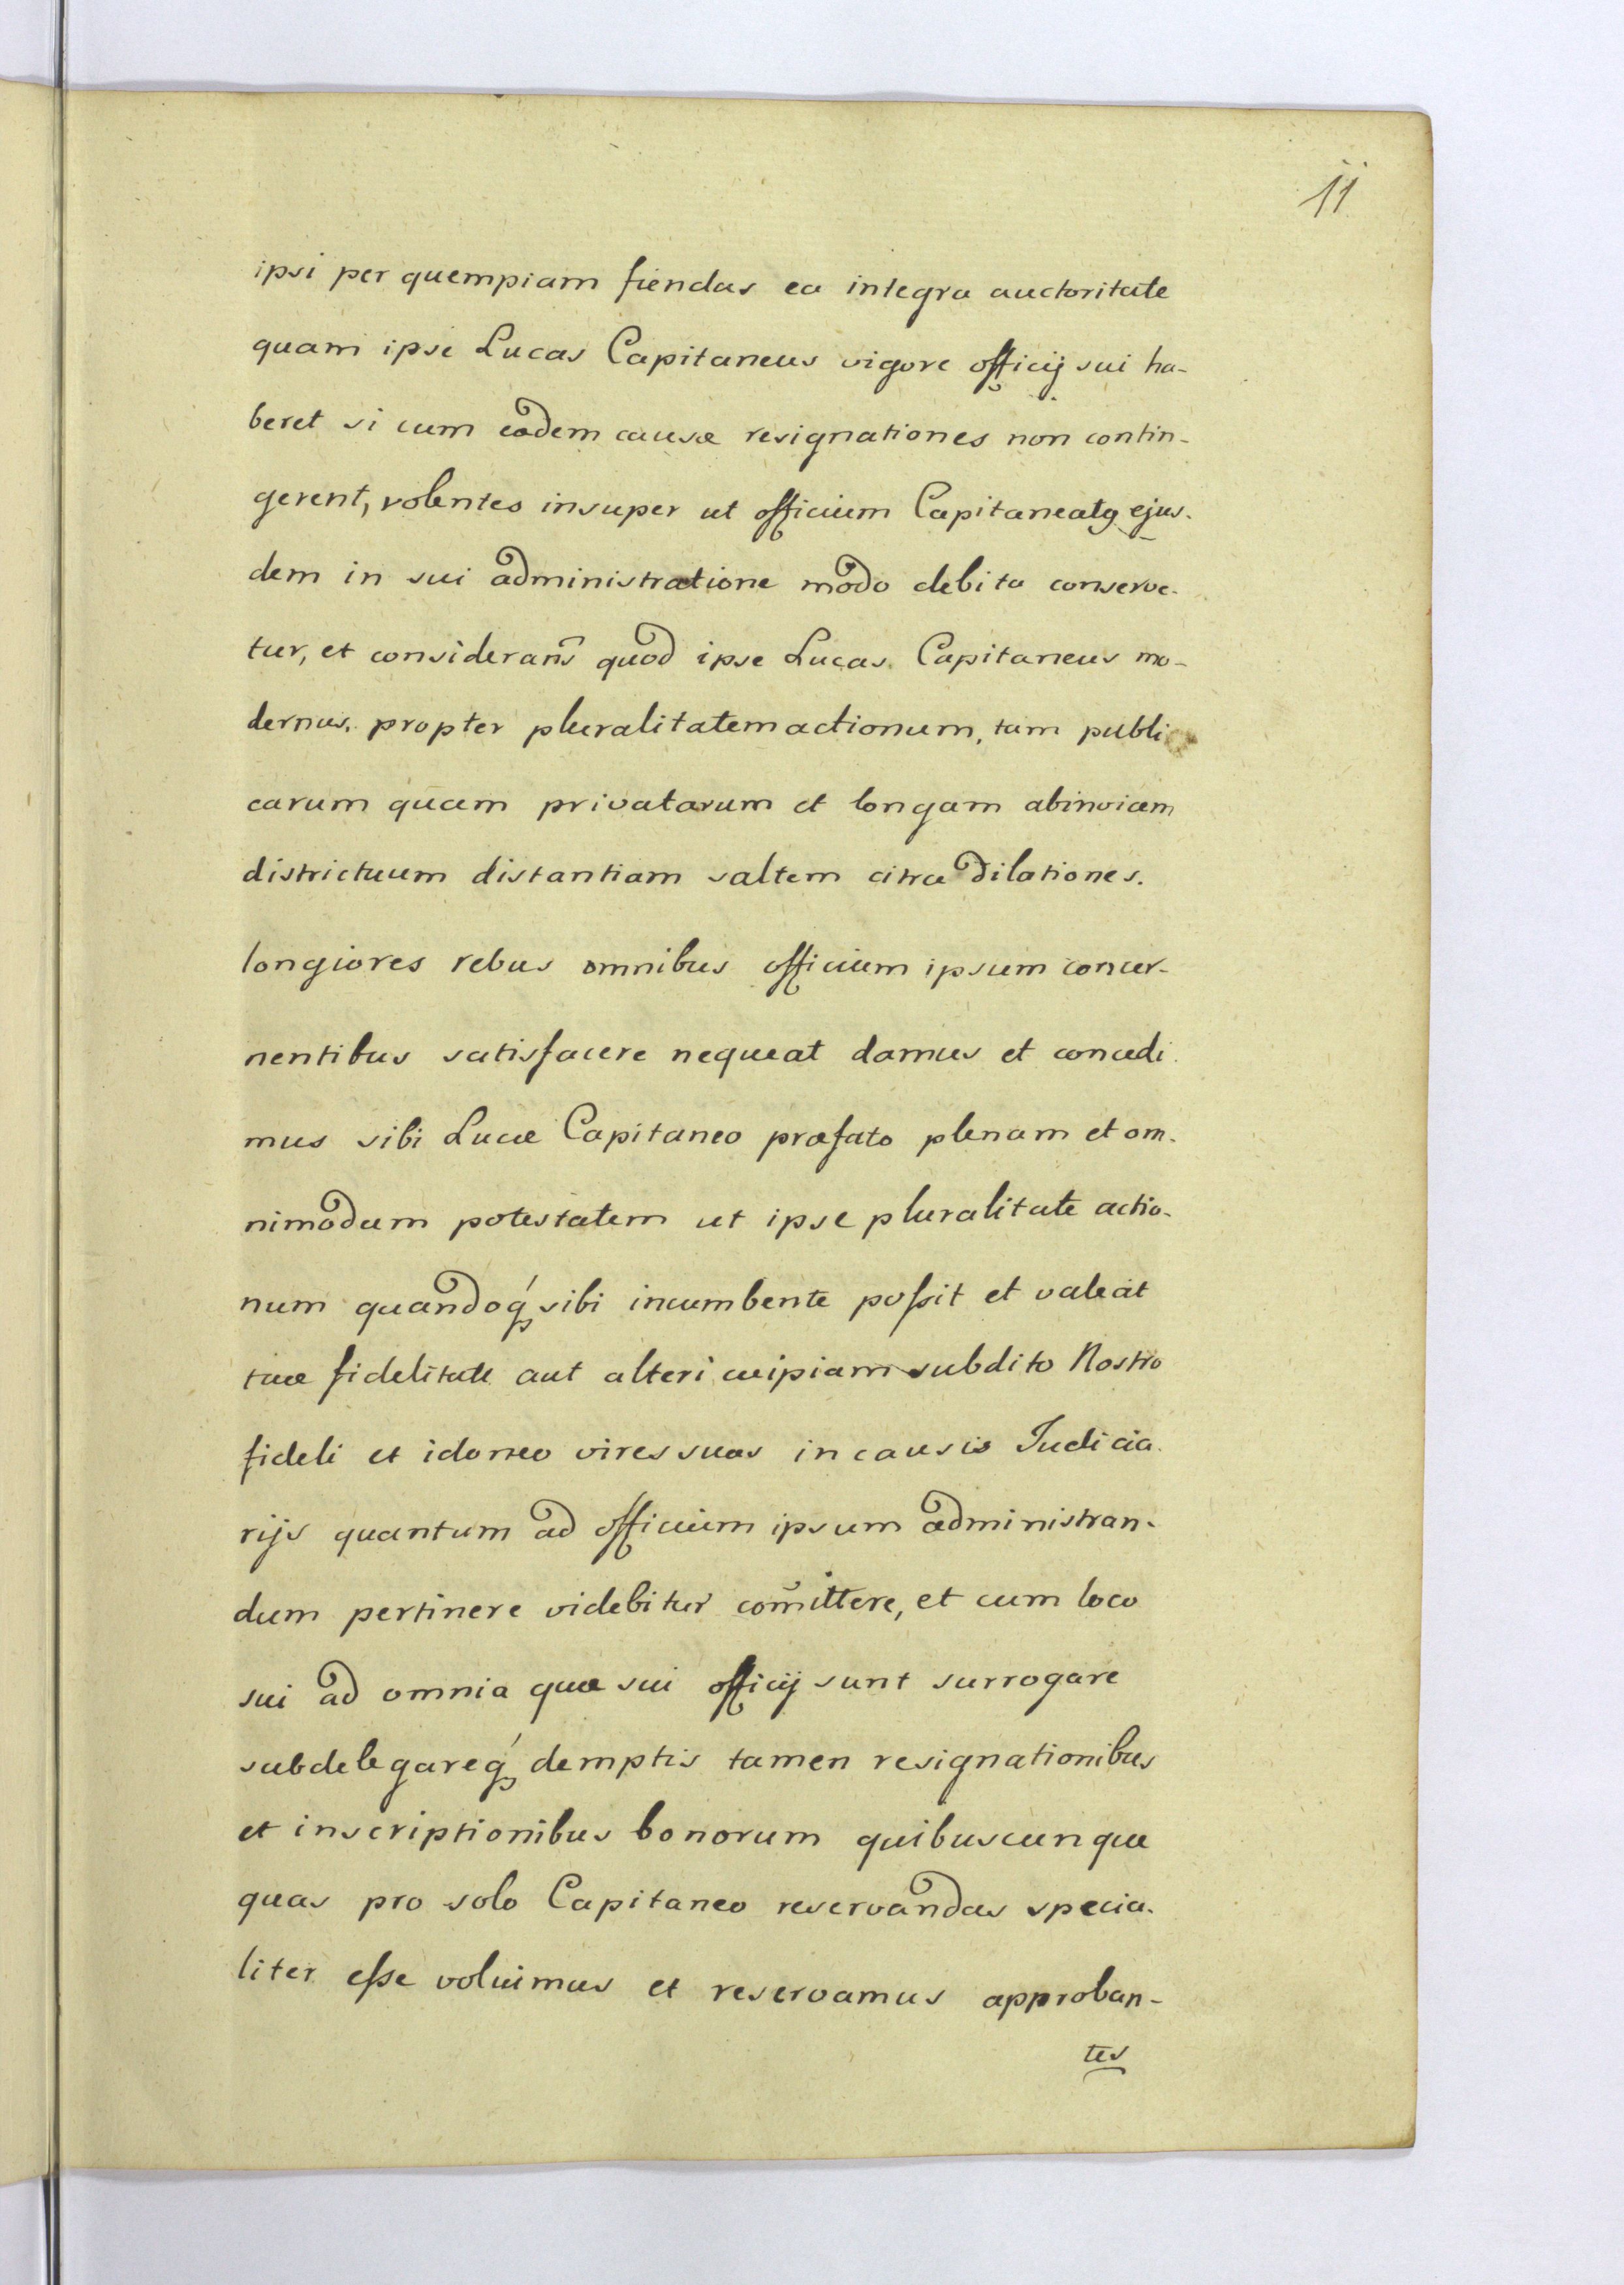 11
ipsi per quempiam fiendas ea integra auctoritate
quam ipse Lucas Capitaneus vigore officij sui ha-
beret si cum eadem causæ resignationes non contin-
gerent, volentes insuper ut officium Capitaneatꝯ ejus-
dem in sui administratione modo debito conserve-
tur, et considerañs quod ipse Lucas Capitaneus mo-
dernus, propter pluralitatem actionum, tam publi
carum quam privatarum et longam abinvicem
districtuum distantiam saltem citra dilationes.
longiores rebus omnibus officium ipsum concer-
nentibus satisfacere nequeat damus et concedi
mus sibi Lucæ Capitaneo præfato plenam et om-
nimodam potestatem ut ipse pluralitate actio-
num quandoqꝫ sibi incumbente poßit et valeat
tuæ fidelitate aut alteri cuipiam subdito Nostro
fideli et idoneo vires suas in causis Judicia-
rijs quantum ad officium ipsum administran-
dum pertinere videbitur com̃ittere, et cum loco
sui ad omnia quæ sui officij sunt surrogare
subdelegareqꝫ demptis tamen resignationibus
et inscriptionibus bonorum quibuscunque
quas pro solo Capitaneo reservandas specia-
liter eße voluimus et reservamus approban-
tes